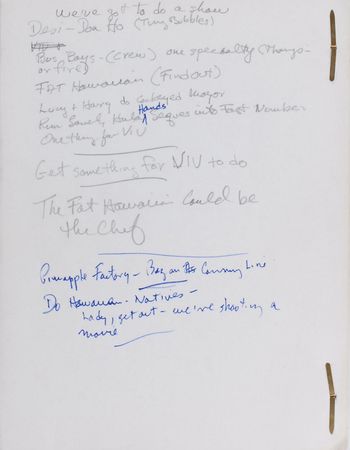 we've got to do a show
Desi - Don Ho (Tiny Bubbles)
Pros Boys - (Crew) one specialty (Thongs
or fire)
FAT Hawaiian (Find out)
Lucy + Harry do Mayor
Run Lovely Hula Hands segues into Fast Number
One thing for Viv
Get something for VIV to do
The Fat Hawaiian Could be
the Chef
Pineapple Factory - Bag on the Canning Line
Do Hawaiian - Natives -
Lady, get out - we're shooting a
movie